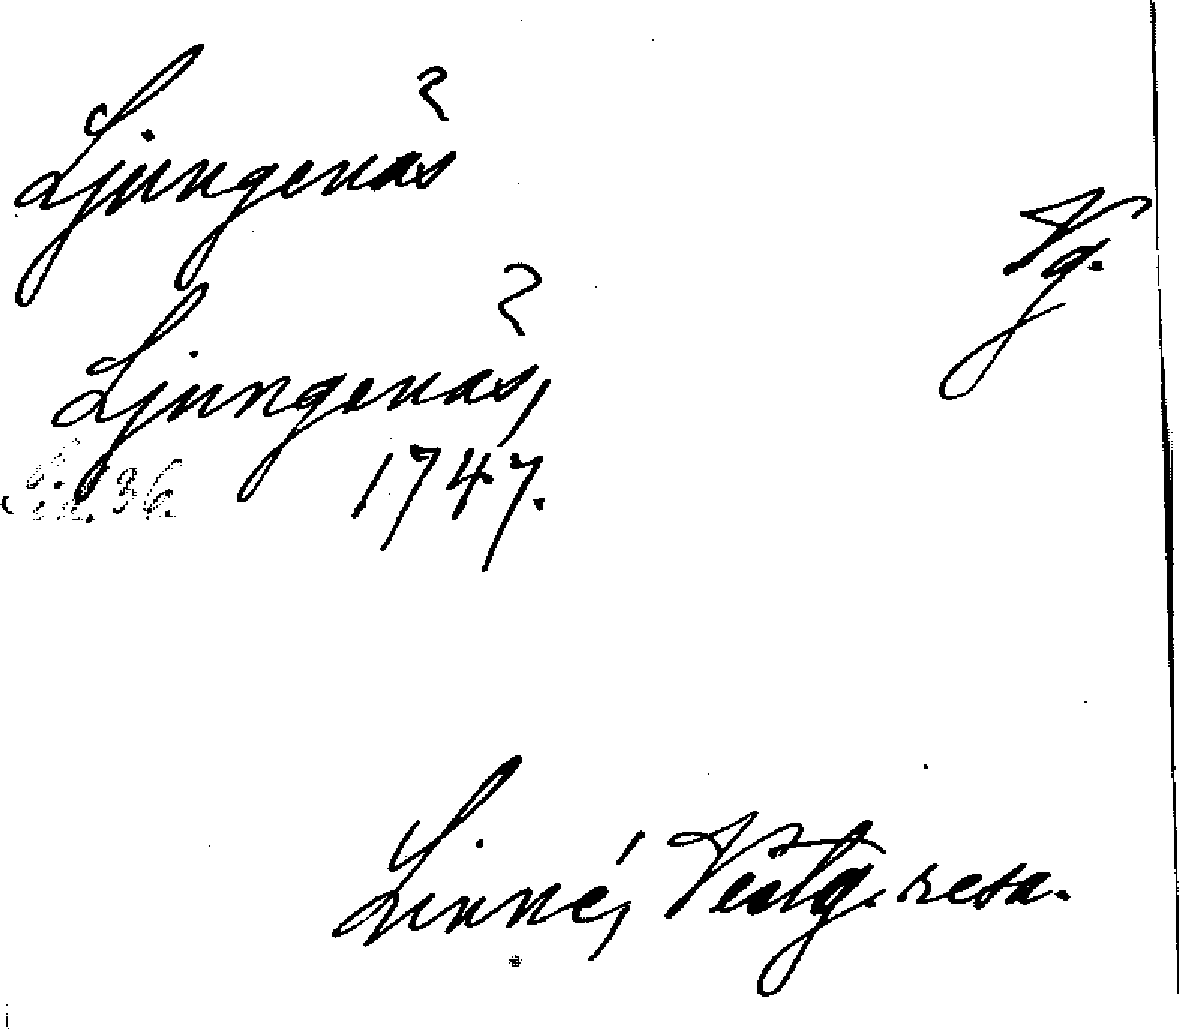 Ljungenäs
Vg.
Ljungenäs,
36. 1747.
Linné, Vestg. resa.